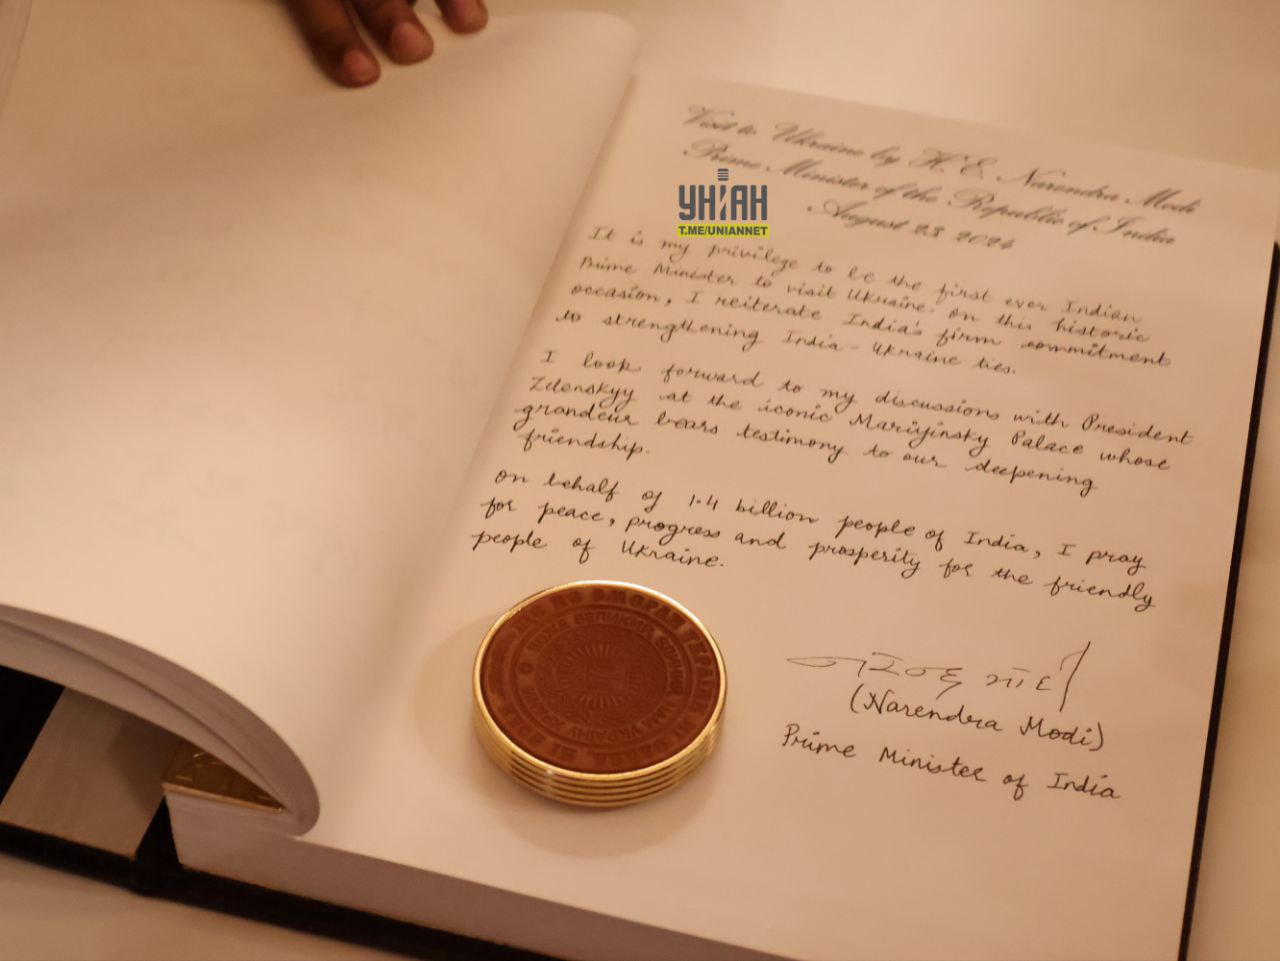 Visit to Ukraine by H. E. Narendra Modi
Prime Minister of the Republic of India
August 23 2024
УНІАН
T.ME/UNIANNET
It is my privilege to be the first ever Indian
Prime Minister to visit Ukraine. On this historic
occasion, I reiterate India's firm commitment
to strengthening India - Ukraine ties.
I look forward to my discussions with President
Zelenskyy at the iconic Mariyinsky Palace whose
grandeur bears testimony to our deepening
friendship.
On behalf of 1.4 billion people of India, I pray
for peace, progress and prosperity for the friendly
people of Ukraine.
નરેન્દ્ર મોદી
(Narendra Modi)
Prime Minister of India
БОЖЕ ВЕЛИКИЙ ЄДИНИЙ НАМ УКРАЇНУ ХРАНИ